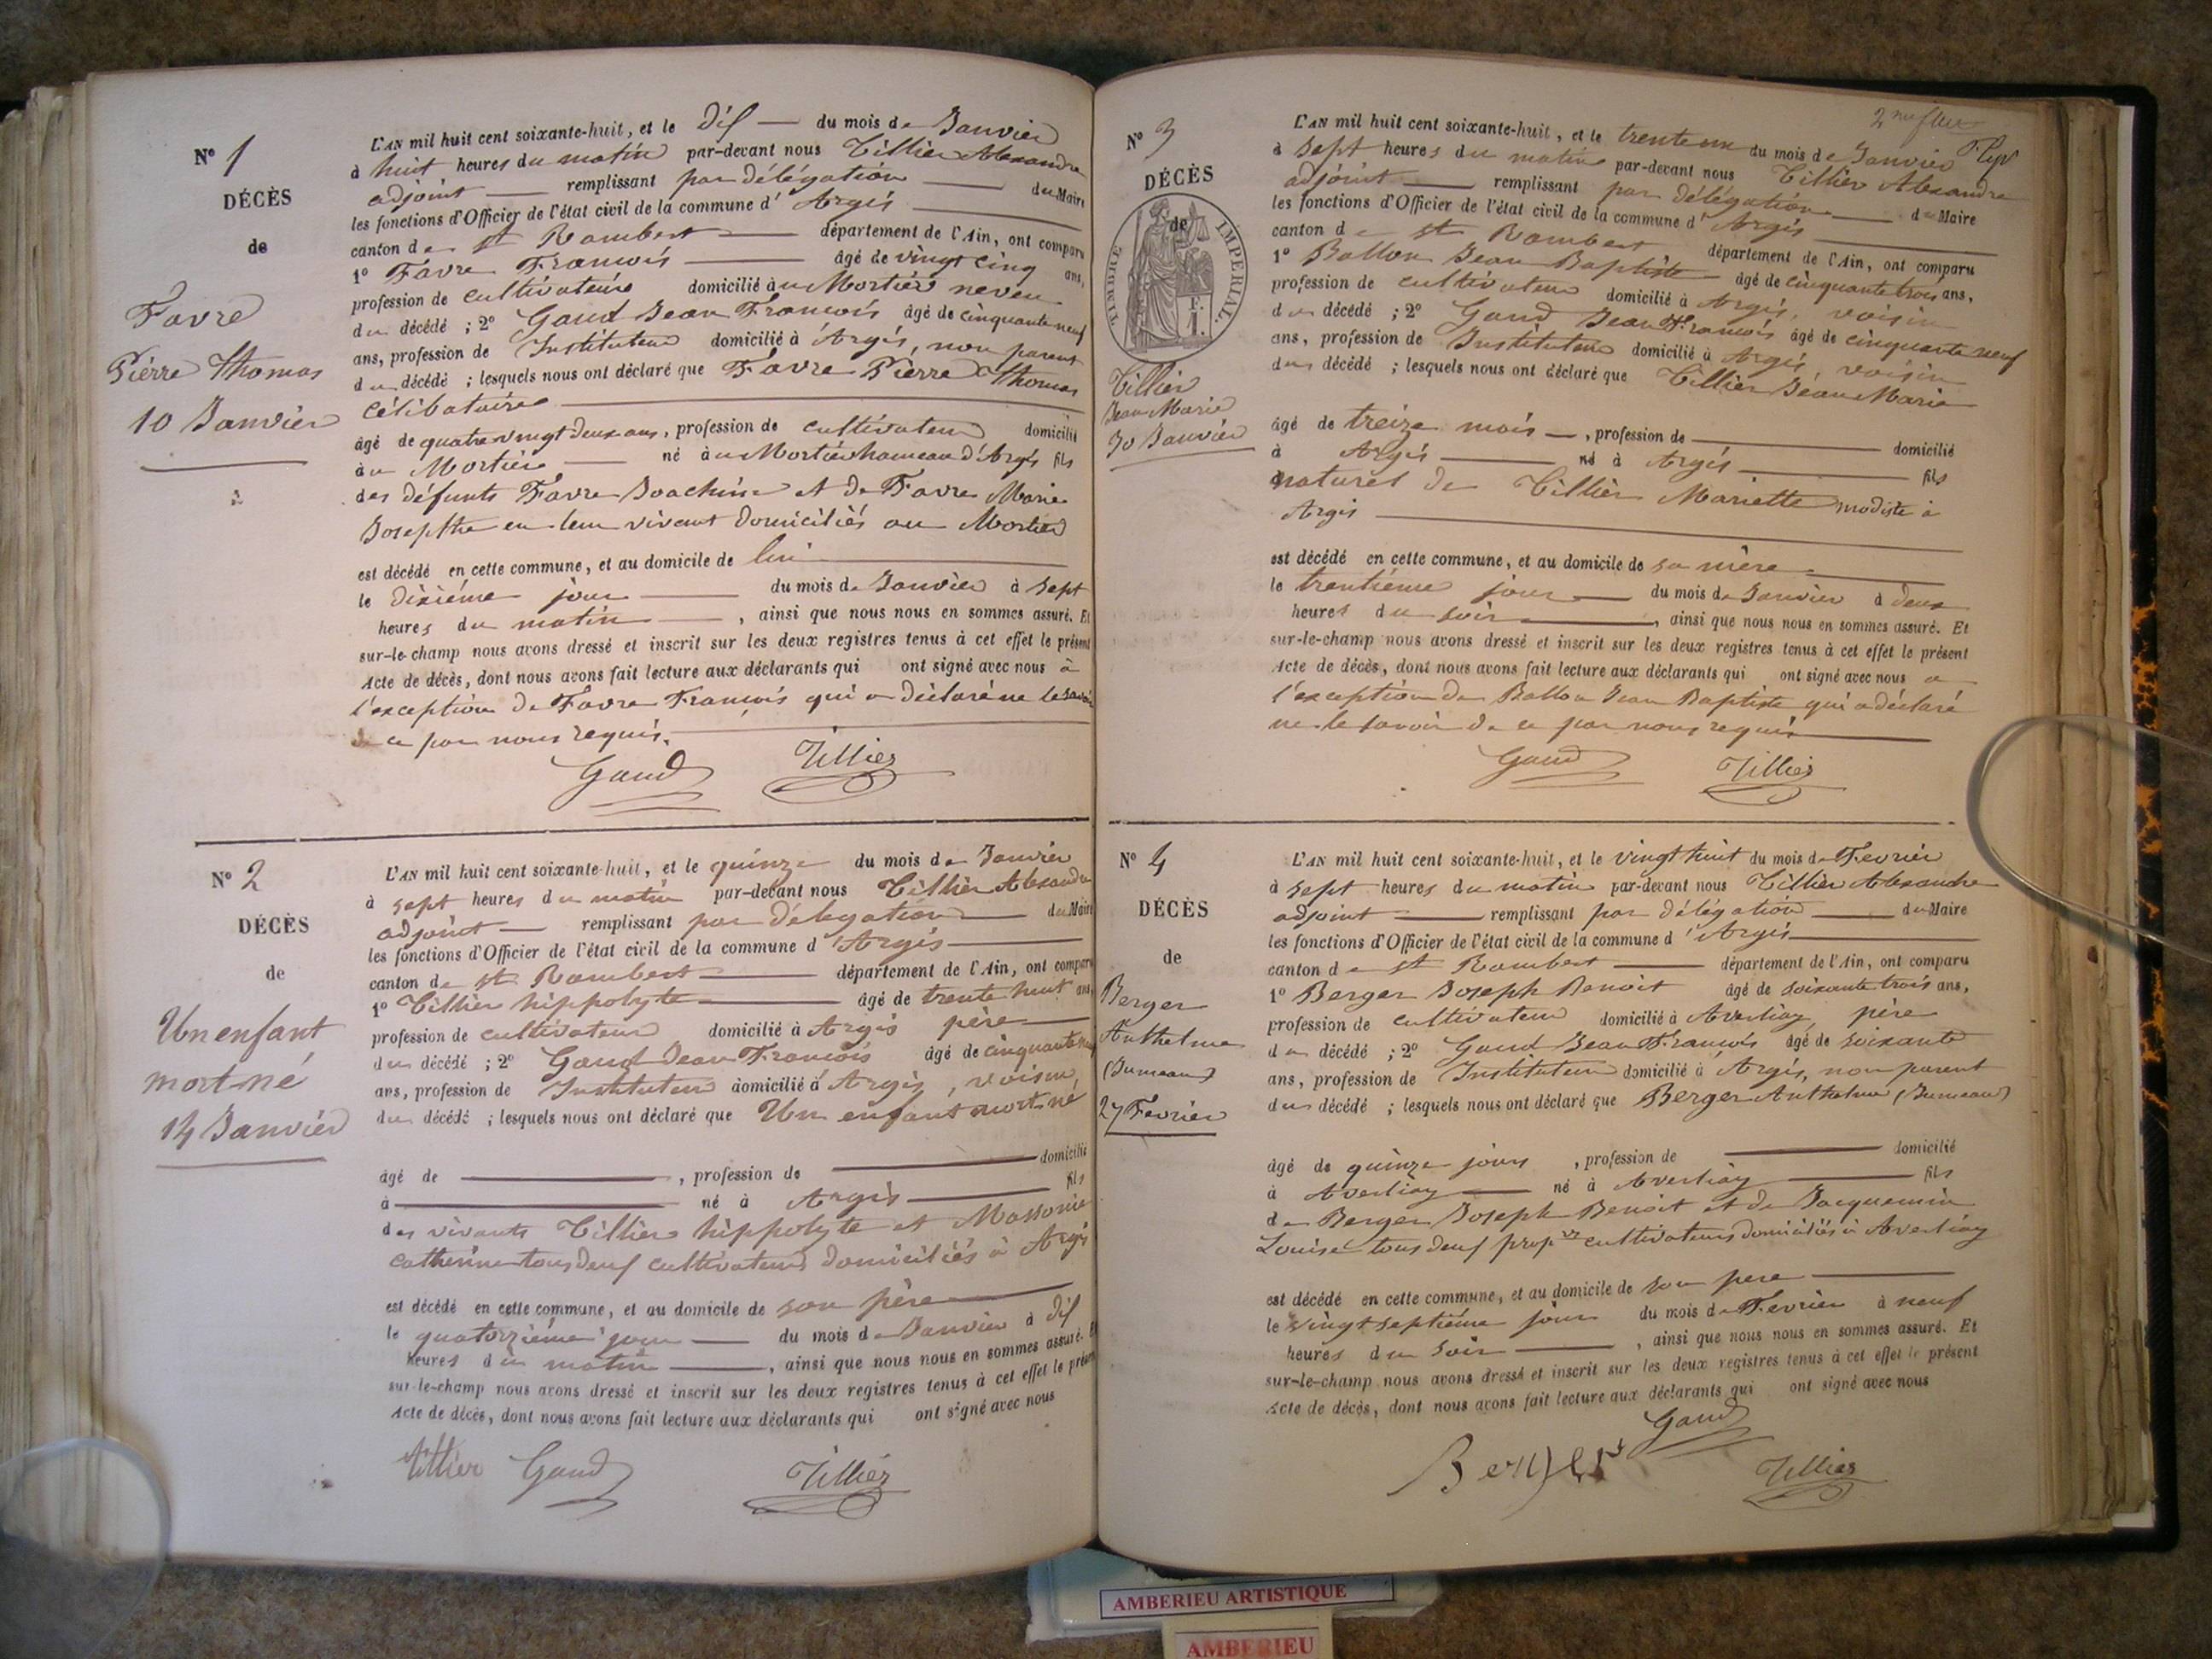 N° 1
DÉCÈS
de
Favre
Pierre Thomas
10 Janvier
L'AN mil huit cent soixante-huit, et le dix du mois de Janvier
à huit heures du matin par-devant nous Tillier Alexandre
adjoint remplissant par délégation du Maire
les fonctions d'Officier de l'état civil de la commune d'Argis
canton de St Rambert département de l'Ain, ont comparu
1° Favre François âgé de vingt cinq ans,
profession de cultivateur domicilié au Mortier neveu
du décédé ; 2° Gaud Jean François âgé de cinquante neuf
ans, profession de Instituteur domicilié à Argis, non parent
du décédé ; lesquels nous ont déclaré que Favre Pierre Thomas
célibataire
âgé de quatre vingt deux ans, profession de cultivateur domicilié
au Mortier né au Mortier hameau d'Argis fils
des défunts Favre Joachim et de Favre Marie
Josephte en leur vivant domiciliés au Mortier
est décédé en cette commune, et au domicile de lui
le dixième jour du mois de Janvier à sept
heures du matin, ainsi que nous nous en sommes assuré. Et
sur-le-champ nous avons dressé et inscrit sur les deux registres tenus à cet effet le présent
Acte de décès, dont nous avons fait lecture aux déclarants qui ont signé avec nous à
l'exception de Favre François qui a déclaré ne le savoir
de ce par nous requis.
Gaud Tillier
N° 2
DÉCÈS
de
Un enfant
mort-né
14 Janvier
L'AN mil huit cent soixante-huit, et le quinze du mois de Janvier
à sept heures du matin par-devant nous Tillier Alexandre
adjoint remplissant par délégation du Maire
les fonctions d'Officier de l'état civil de la commune d'Argis
canton de St Rambert département de l'Ain, ont comparu
1° Tillier hippolyte âgé de trente huit ans,
profession de cultivateur domicilié à Argis père
du décédé ; 2° Gaud Jean François âgé de cinquante neuf
ans, profession de Instituteur domicilié à Argis, voisin,
du décédé ; lesquels nous ont déclaré que Un enfant mort-né
âgé de , profession de domicilié
à né à Argis fils
des vivants Tillier hippolyte et Massonie
catherine tous deux cultivateurs domiciliés à Argis
est décédé en cette commune, et au domicile de son père
le quatorzième jour du mois de Janvier à dix
heures du matin, ainsi que nous nous en sommes assuré. Et
sur-le-champ nous avons dressé et inscrit sur les deux registres tenus à cet effet le présent
Acte de décès, dont nous avons fait lecture aux déclarants qui ont signé avec nous
tillier Gaud Tillier
N° 3
DÉCÈS
de
TIMBRE IMPERIAL.
F.
1.
Tillier
Jean Marie
30 Janvier
L'AN mil huit cent soixante-huit, et le trente un du mois de Janvier
à sept heures du matin par-devant nous Tillier Alexandre
adjoint remplissant par délégation du Maire
les fonctions d'Officier de l'état civil de la commune d'Argis
canton de St Rambert département de l'Ain, ont comparu
1° Ballon Jean Baptiste âgé de cinquante trois ans,
profession de cultivateur domicilié à Argis, voisin
du décédé ; 2° Gaud Jean François âgé de cinquante neuf
ans, profession de Instituteur domicilié à Argis, voisin
du décédé ; lesquels nous ont déclaré que Tillier Jean Marie
âgé de treize mois, profession de domicilié
à Argis né à Argis fils
naturel de Tillier Mariette modiste à
Argis
est décédé en cette commune, et au domicile de sa mère
le trentième jour du mois de Janvier à deux
heures du soir, ainsi que nous nous en sommes assuré. Et
sur-le-champ nous avons dressé et inscrit sur les deux registres tenus à cet effet le présent
Acte de décès, dont nous avons fait lecture aux déclarants qui ont signé avec nous a
l'exception de Ballon Jean Baptiste qui a déclaré
ne le savoir de ce par nous requis
Gaud Tillier
N° 4
DÉCÈS
de
Berger
Anthelme
(Jumeau)
27 Fevrier
L'AN mil huit cent soixante-huit, et le vingt huit du mois de Fevrier
à sept heures du matin par-devant nous Tillier Alexandre
adjoint remplissant par délégation du Maire
les fonctions d'Officier de l'état civil de la commune d'Argis
canton de St Rambert département de l'Ain, ont comparu
1° Berger Joseph Benoit âgé de soixante trois ans,
profession de cultivateur domicilié à Averliaz père
du décédé ; 2° Gaud Jean François âgé de soixante
ans, profession de Instituteur domicilié à Argis, non parent
du décédé ; lesquels nous ont déclaré que Berger Anthelme (Jumeau)
âgé de quinze jours, profession de domicilié
à Averliaz né à Averliaz fils
de Berger Joseph Benoit et de Jacquemin
Louise tous deux propres cultivateurs domiciliés à Averliaz
est décédé en cette commune, et au domicile de son pere
le vingt septième jour du mois de Fevrier à neuf
heures du soir, ainsi que nous nous en sommes assuré. Et
sur-le-champ nous avons dressé et inscrit sur les deux registres tenus à cet effet le présent
Acte de décès, dont nous avons fait lecture aux déclarants qui ont signé avec nous
Gaud
Berger Tillier
AMBERIEU ARTISTIQUE
AMBERIEU